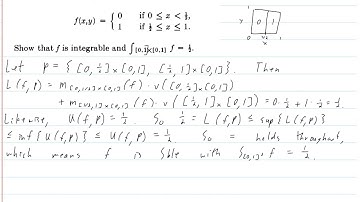 f(x,y) = { 0 if 0 ≤ x < 1/2,
1 if 1/2 ≤ x ≤ 1.
1
Y 0 1
0 1/2 1
x
Show that f is integrable and ∫[0,1]×[0,1] f = 1/2.
Let P = { [0, 1/2] × [0,1], [1/2, 1] × [0,1] }. Then
L(f,P) = m[0,1/2]×[0,1](f) · v([0, 1/2] × [0,1])
+ m[1/2,1]×[0,1](f) · v([1/2, 1] × [0,1]) = 0·1/2 + 1·1/2 = 1/2.
Likewise, U(f,P) = 1/2. So 1/2 = L(f,P) ≤ sup{L(f,P)}
≤ inf{U(f,P)} ≤ U(f,P) = 1/2. So = holds throughout,
which means f is ∫ble with ∫[0,1]² f = 1/2.